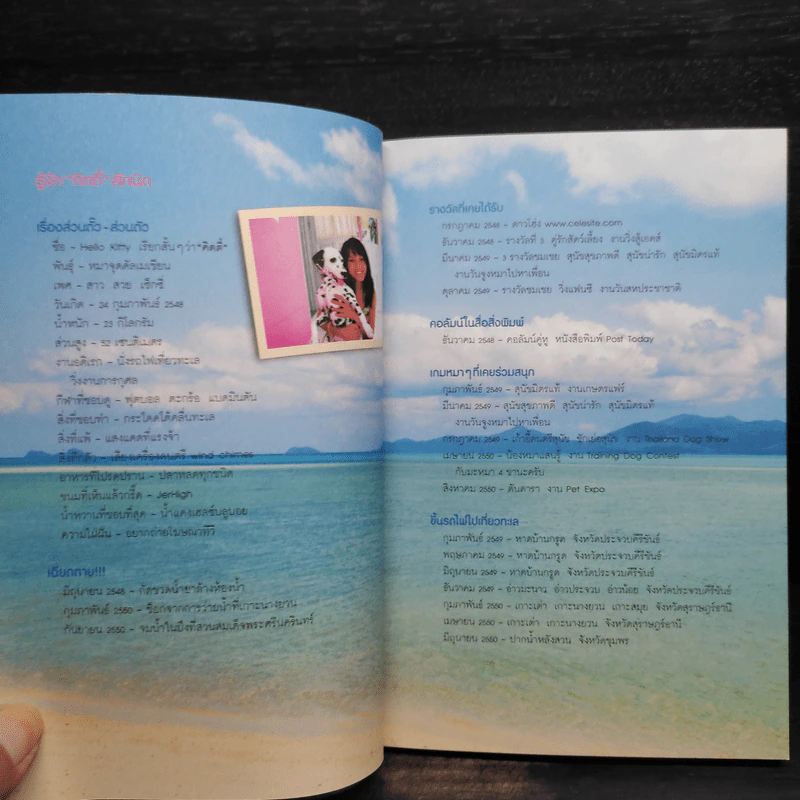 รู้จัก "คิตตี้" สักนิด
เรื่องส่วนตั๊ว - ส่วนตัว
ชื่อ - Hello Kitty เรียกสั้นๆว่า "คิตตี้"
พันธุ์ - หมาจุดดัลเมเชียน
เพศ - สาว สวย เซ็กซี่
วันเกิด - 24 กุมภาพันธ์ 2548
น้ำหนัก - 23 กิโลกรัม
ส่วนสูง - 52 เซนติเมตร
งานอดิเรก - นั่งรถไฟเที่ยวทะเล
วิ่งงานการกุศล
กีฬาที่ชอบดู - ฟุตบอล ตะกร้อ แบดมินตัน
สิ่งที่ชอบทำ - กระโดดโต้คลื่นทะเล
สิ่งที่แพ้ - แสงแดดที่แรงจ้า
สิ่งที่กลัว - เสียงเครื่องดนตรี wind chimes
อาหารที่โปรดปราน - ปลาหลดทุกชนิด
ขนมที่เห็นแล้วกรี๊ด - JerHigh
น้ำหวานที่ชอบที่สุด - น้ำแดงเฮลซ์บลูบอย
ความใฝ่ฝัน - อยากถ่ายโฆษณาทีวี
เฉียดตาย!!!
มิถุนายน 2548 - กัดขวดน้ำยาล้างห้องน้ำ
กุมภาพันธ์ 2550 - ช็อกจากการว่ายน้ำที่เกาะนางยวน
กันยายน 2550 - จมน้ำในบึงที่สวนสมเด็จพระศรีนครินทร์
รางวัลที่เคยได้รับ
กรกฎาคม 2548 - ดาวโฮ่ง www.celesite.com
ธันวาคม 2548 - รางวัลที่ 3 คู่รักสัตว์เลี้ยง งานวิ่งสู้เอดส์
มีนาคม 2549 - 3 รางวัลชมเชย สุนัขสุขภาพดี สุนัขน่ารัก สุนัขมิตรแท้
งานวันจูงหมาไปหาเพื่อน
ตุลาคม 2549 - รางวัลชมเชย วิ่งแฟนซี งานวันสหประชาชาติ
คอลัมน์ในสื่อสิ่งพิมพ์
ธันวาคม 2548 - คอลัมน์คู่หู หนังสือพิมพ์ Post Today
เกมหมาๆที่เคยร่วมสนุก
กุมภาพันธ์ 2549 - สุนัขมิตรแท้ งานเกษตรแฟร์
มีนาคม 2549 - สุนัขสุขภาพดี สุนัขน่ารัก สุนัขมิตรแท้
งานวันจูงหมาไปหาเพื่อน
กรกฎาคม 2549 - เก้าอี้ดนตรีสุนัข ชักเย่อสุนัข งาน Thailand Dog Show
เมษายน 2550 - น้องหมาแสนรู้ งาน Training Dog Contest
กับมะหมา 4 ขานะครับ
สิงหาคม 2550 - ดันดารา งาน Pet Expo
ขึ้นรถไฟไปเที่ยวทะเล
กุมภาพันธ์ 2549 - หาดบ้านกรูด จังหวัดประจวบคีรีขันธ์
พฤษภาคม 2549 - หาดบ้านกรูด จังหวัดประจวบคีรีขันธ์
มิถุนายน 2549 - หาดบ้านกรูด จังหวัดประจวบคีรีขันธ์
ธันวาคม 2549 - อ่าวมะนาว อ่าวประจวบ อ่าวน้อย จังหวัดประจวบคีรีขันธ์
กุมภาพันธ์ 2550 - เกาะเต่า เกาะนางยวน เกาะสมุย จังหวัดสุราษฎร์ธานี
เมษายน 2550 - เกาะเต่า เกาะนางยวน จังหวัดสุราษฎร์ธานี
มิถุนายน 2550 - ปากน้ำหลังสวน จังหวัดชุมพร